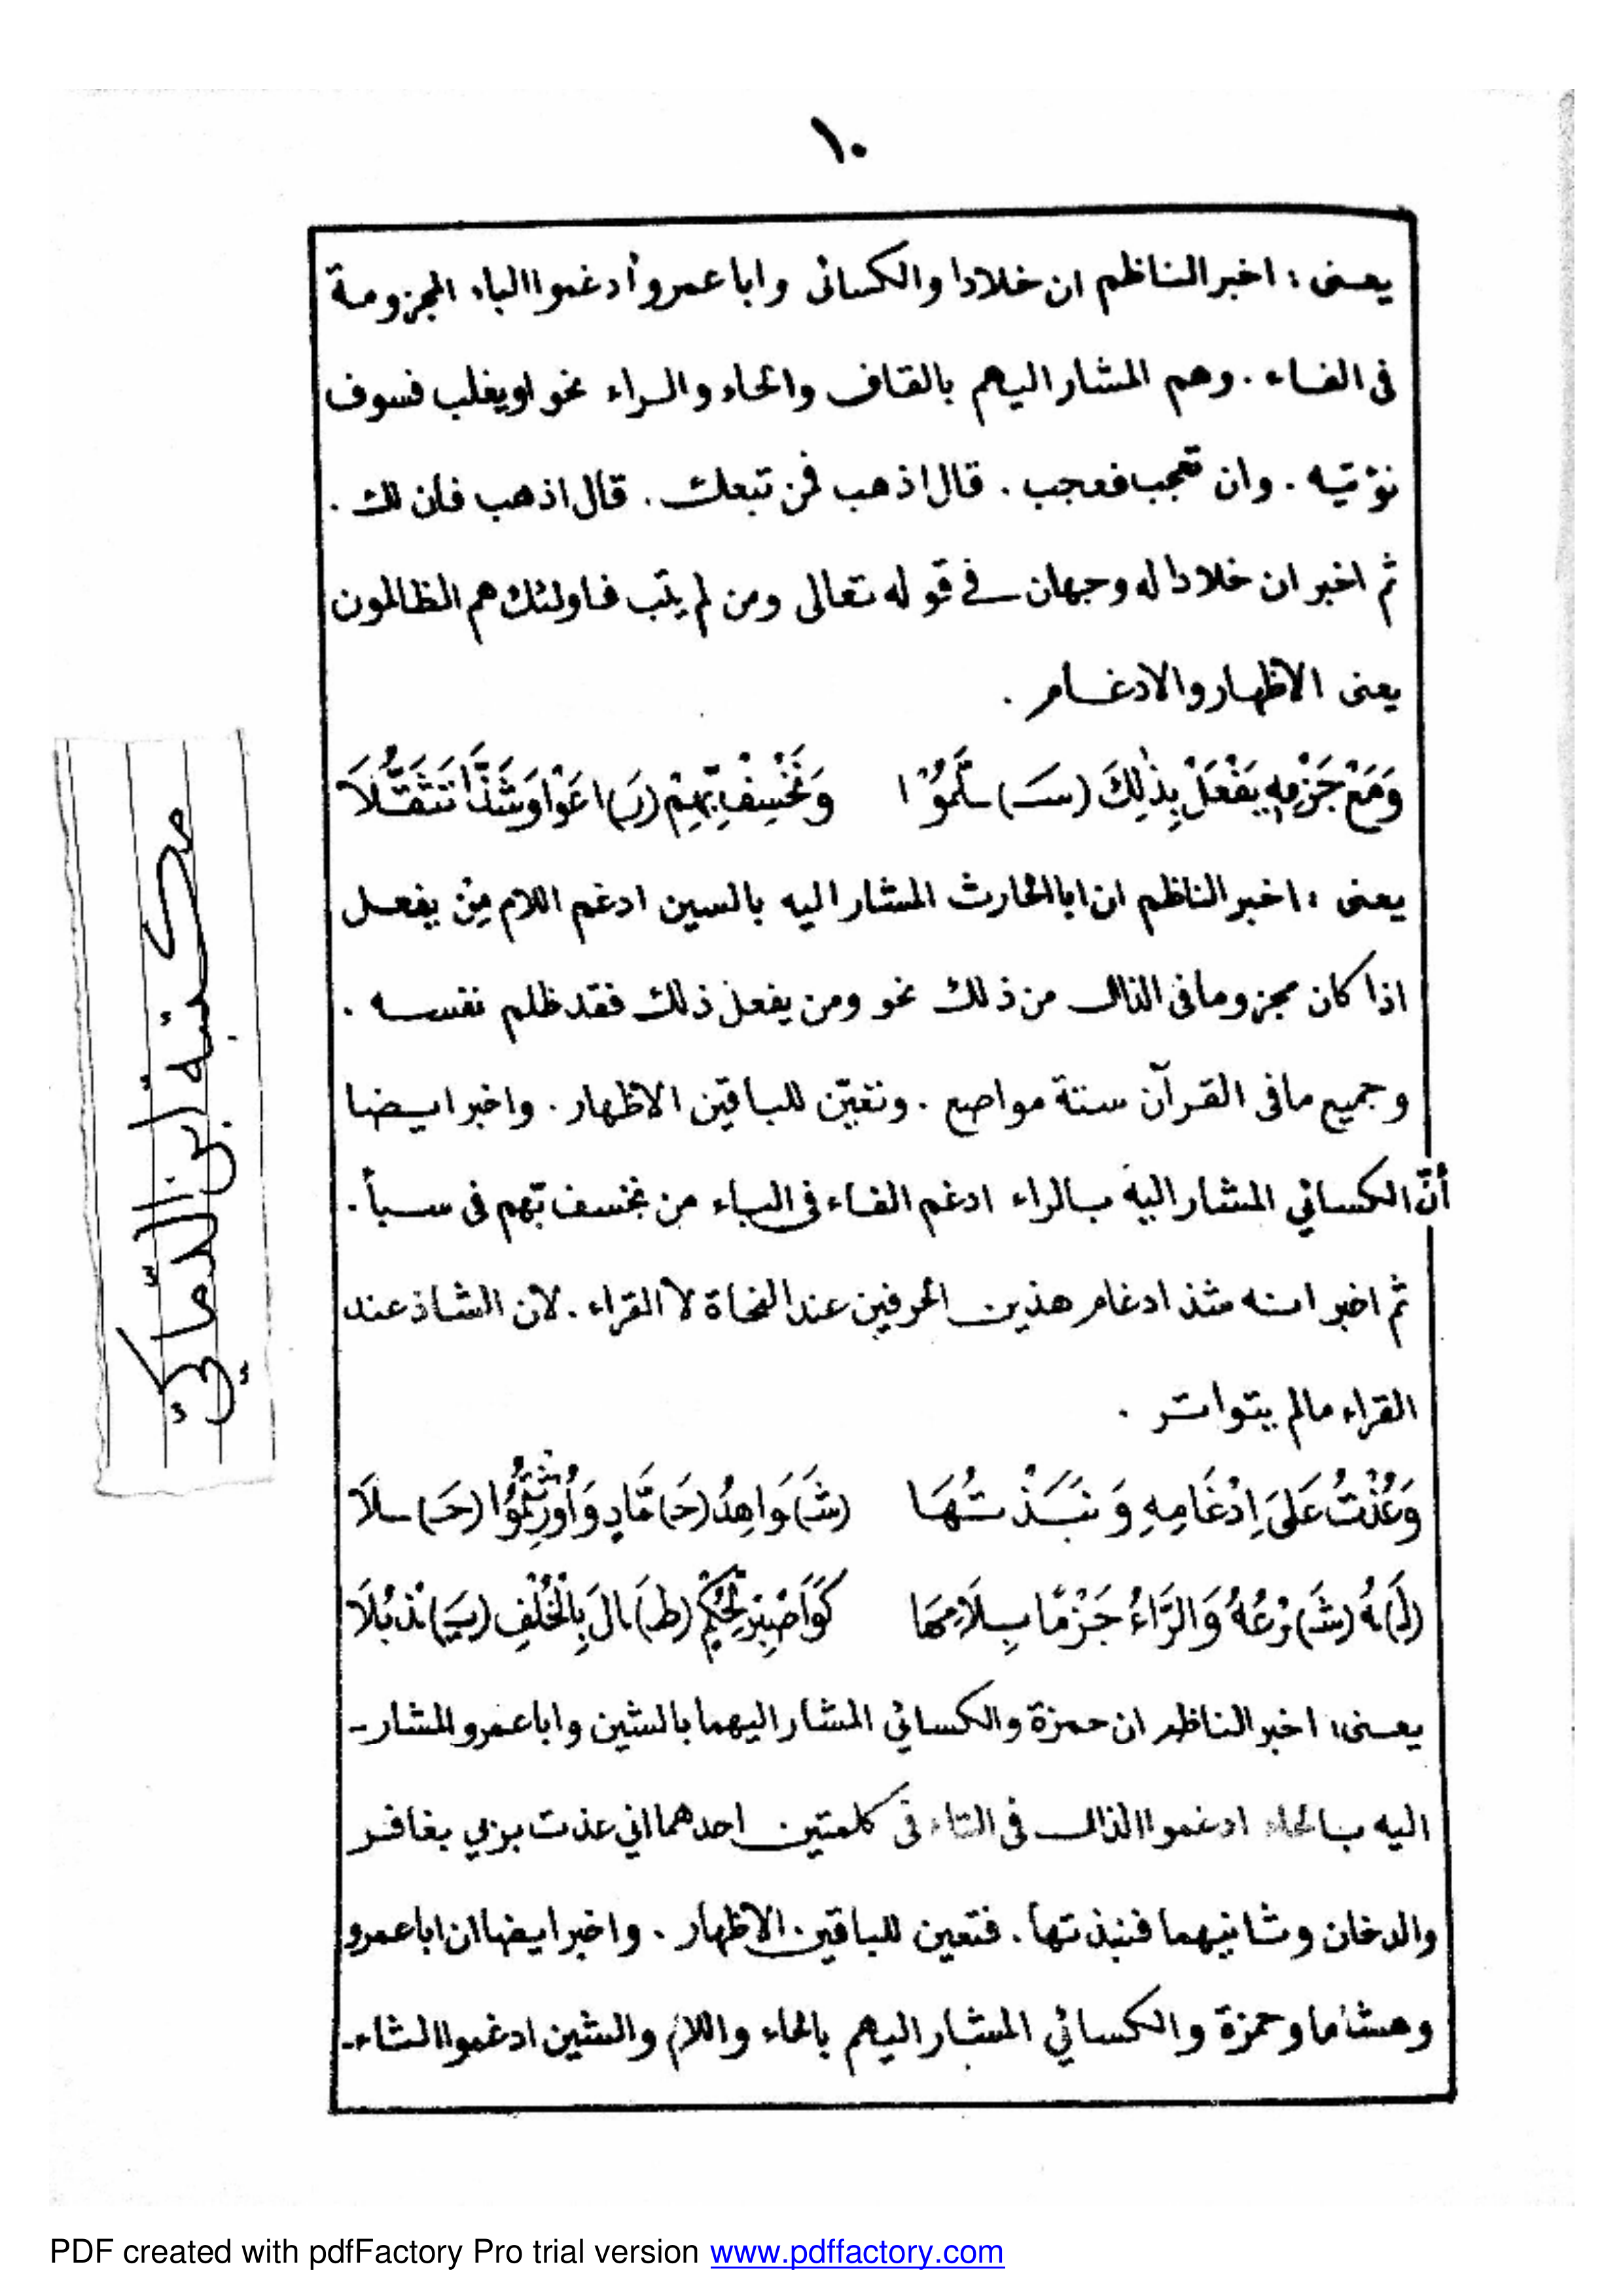 ١٠
يعنى : اخبر الناظم ان خلادا والكسائى وابا عمرو أدغموا الباء المجزومة
فى الفاء . وهم المشار اليهم بالقاف والحاء والراء نحو او يغلب فسوف
نؤتيه . وان تعجب فعجب . قال اذهب فمن تبعك . قال اذهب فان لك .
ثم اخبر ان خلادا له وجهان فى قوله تعالى ومن لم يتب فاولئك هم الظالمون
يعنى الاظهار والادغام .
وَمَعْ جَزْمِهِ يَفْعَلْ بِذٰلِكَ (سَـ) ـلَّمُوْا وَنَخْسِفْ بِّهِمْ (رَ) اعَوْا وَشَذَّا تَثَقُّلَا
يعنى : اخبر الناظم ان ابا الحارث المشار اليه بالسين ادغم اللام مِنْ يفعل
اذا كان مجزوما فى الذال من ذلك نحو ومن يفعل ذلك فقد ظلم نفسه .
وجميع ما فى القرآن ستة مواضع . وتعيّن للباقين الاظهار . واخبر ايضا
أنّ الكسائي المشار اليه بالراء ادغم الفاء فى الباء من نخسف بّهم فى سبأ .
ثم اخبر انه شذ ادغام هذين الحرفين عند النحاة لا القراء . لان الشاذ عند
القراء مالم يتواتر .
وَعُذْتُ عَلَىٰ إِدْغَامِهِ وَنَبَذْتُهَا (شَـ) وَاهِدُ (حَـ) مَّادٍ وَأُورِثْتُمُوْا (حَـ) ـلَا
(لَـ) ـهُ (شَـ) رْعُهُ وَالرَّاءُ جَزْمًا بِلَامِهَا كَوَاصْبِرْ لِحُكْمِ (طَـ) ـالَ بِالْخُلْفِ (يَـ) ـذْبُلَا
يعنى: اخبر الناظم ان حمزة والكسائي المشار اليهما بالشين وابا عمرو المشار-
اليه بالحاء ادغموا الذال فى التاء فى كلمتين احدهما اني عذت بربي بغافر
والدخان وثانيهما فنبذتها . فتعين للباقين الاظهار . واخبر ايضا ان ابا عمرو
وهشاما وحمزة والكسائي المشار اليهم بالحاء واللام والشين ادغموا الثاء-
مكتبة ابن الدماكي
PDF created with pdfFactory Pro trial version www.pdffactory.com